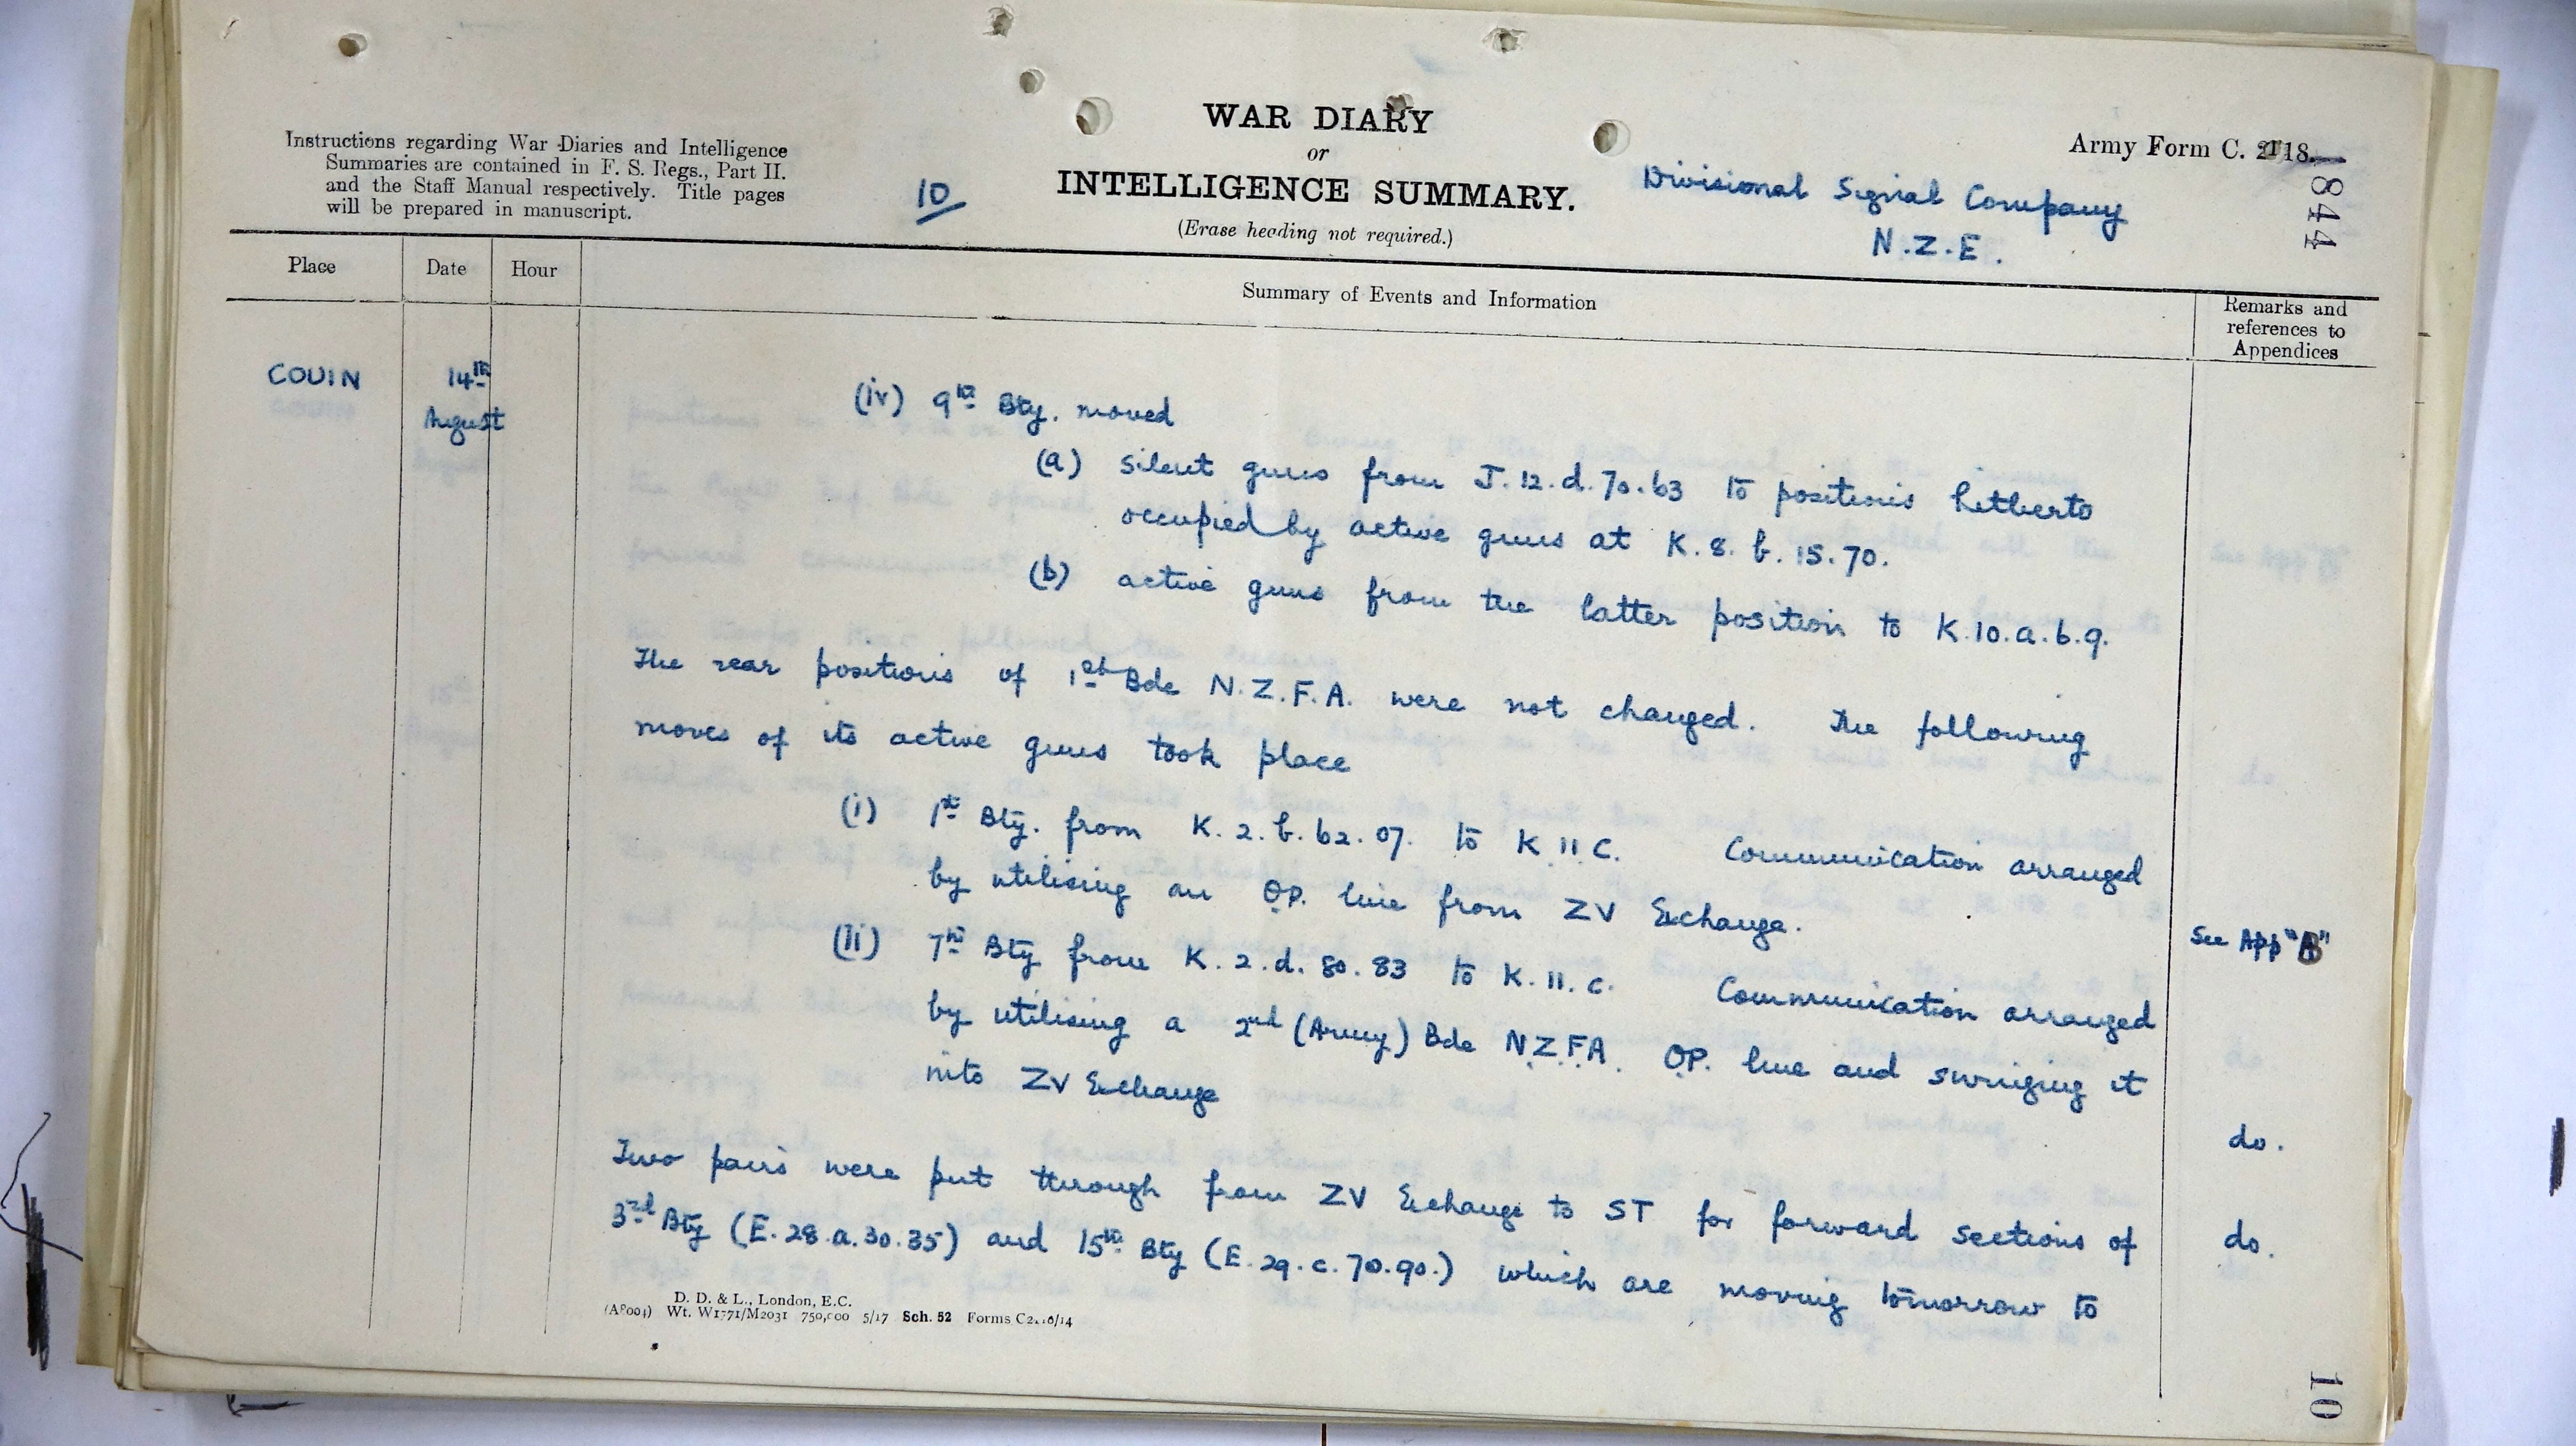 WAR DIARY
or
INTELLIGENCE SUMMARY.
(Erase heading not required.)
Instructions regarding War Diaries and Intelligence
Summaries are contained in F. S. Regs., Part II.
and the Staff Manual respectively. Title pages
will be prepared in manuscript.
10
Army Form C. 2118.
Divisional Signal Company
N.Z.E.
1844
Place
Date
Hour
Summary of Events and Information
Remarks and
references to
Appendices
COUIN
14th
August
(iv) 9th Bty. moved
(a) silent guns from J.12.d.70.63 to positions hitherto
occupied by active guns at K.8.b.15.70.
(b) active guns from the latter position to K.10.a.6.9.
The rear positions of 1st Bde N.Z.F.A. were not changed. The following
moves of its active guns took place
(i) 1st Bty. from K.2.b.62.07. to K.11.C. Communication arranged
by utilising an O.P. line from ZV Exchange.
See App "B"
(ii) 7th Bty from K.2.d.80.83 to K.11.c. Communication arranged
by utilising a 2nd (Army) Bde N.Z.F.A. O.P. line and swinging it
into ZV Exchange
do.
Two pairs were put through from ZV Exchange to ST for forward sections of
do.
3rd Bty (E.28.a.30.35) and 15th Bty (E.29.c.70.90.) which are moving tomorrow to
D. D. & L., London, E.C.
(A8004) Wt. W1771/M2031 750,000 5/17 Sch. 52 Forms C2118/14
10